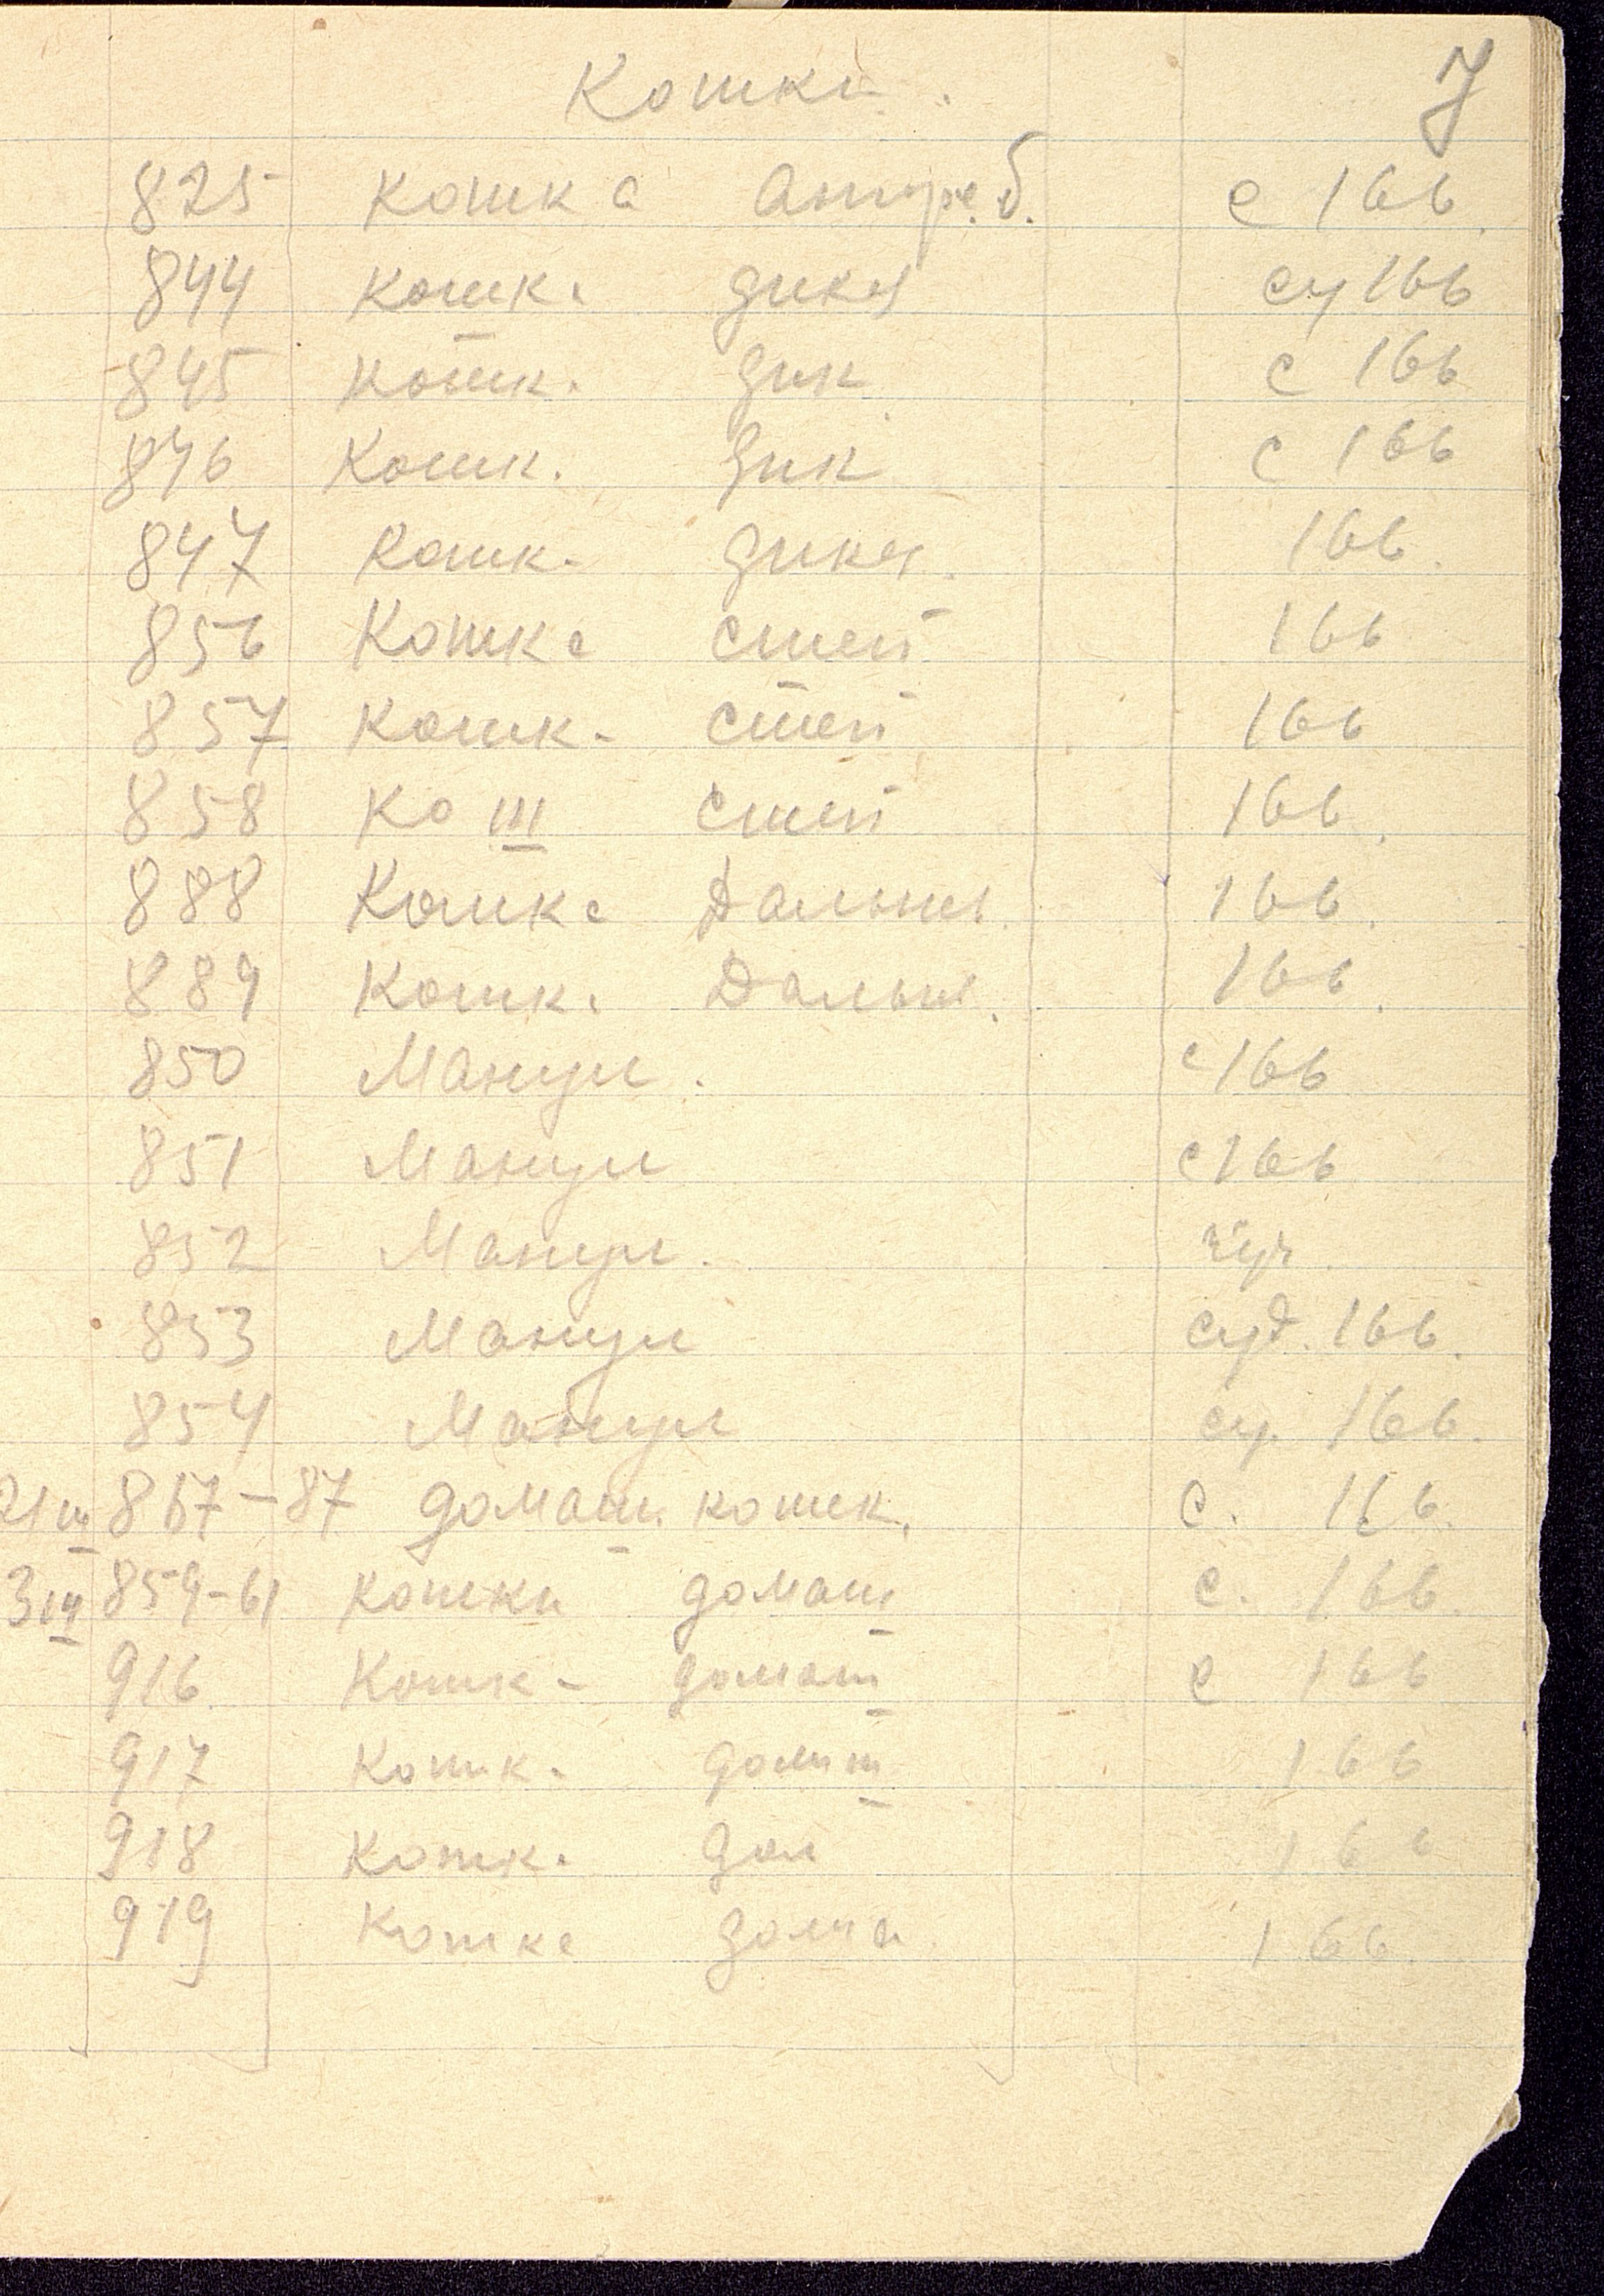 Кошки. 7
825 кошка с 166.
844 кошка дикая су 166
845 кошк. дик с 166
846 Кошк. дик с 166
847 кошк. дикая. 166.
856 Кошка степ 166
857 кошк. степ 166
858 кош степ 166.
888 Кошка Дальн. 166.
889 Кошка Дальн. 166.
850 Манул. с 166
851 Манул с 166
852 Манул.
853 Манул суд. 166.
854 Манул су. 166.
21ш 867-87 домаш. кошк. с. 166.
3ш 859-61 кошки домаш с. 166.
916 Кошк. домаш с 166
917 Кошк. домаш 166
918 кошк. дом 166
919 кошка дома 166.